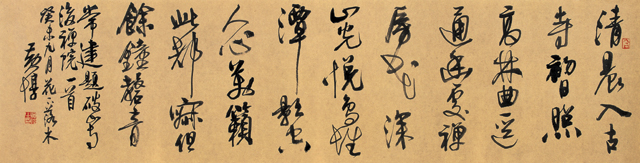 清晨入古
寺初日照
高林曲逕
通幽處禪
房花深
山光悅鳥性
潭影空
人心萬籟
此都寂但
餘鐘磬音
常建題破山寺
後禪院一首
癸未九月花下落木